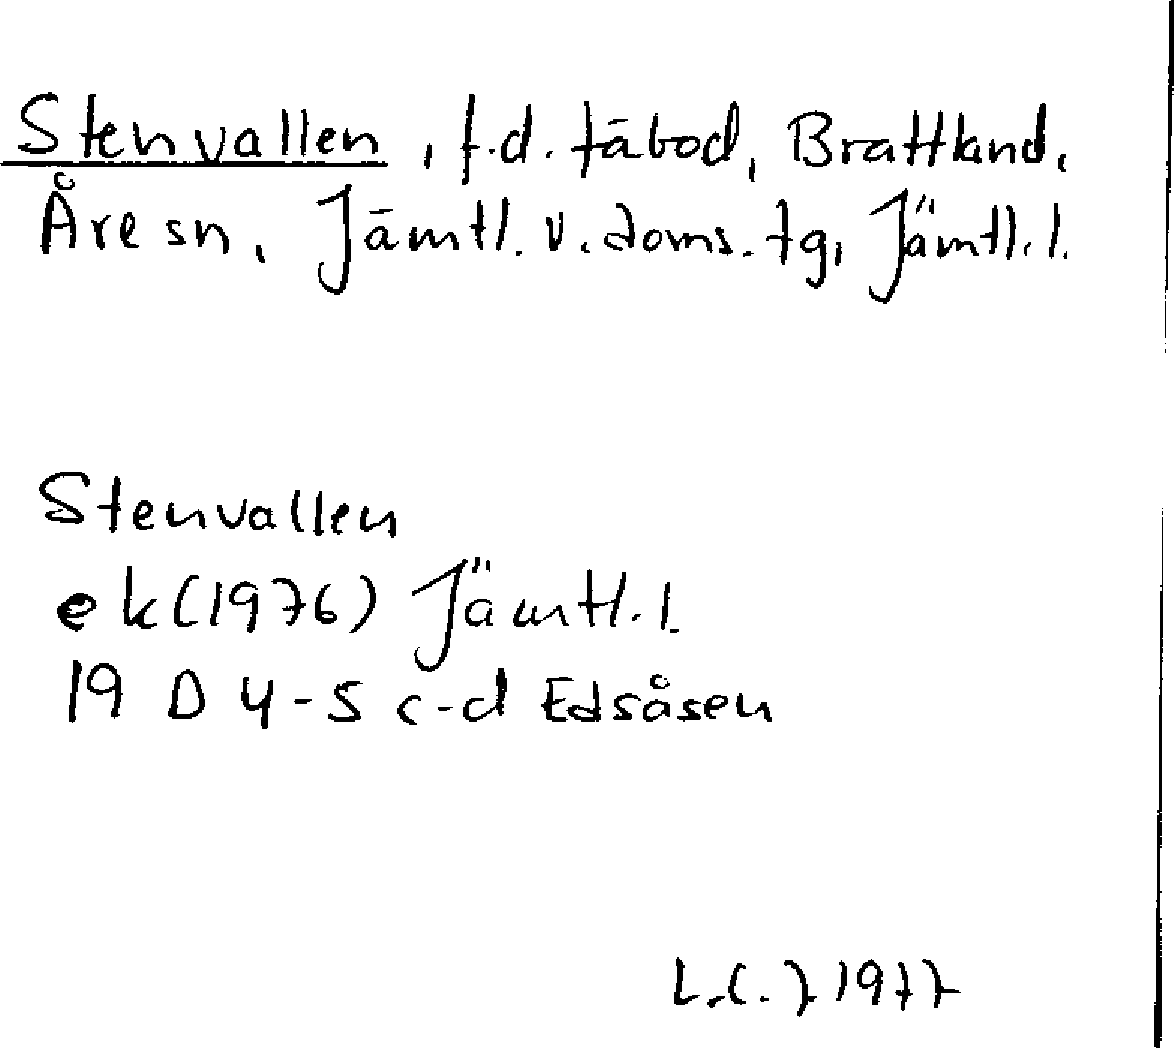 Stenvallen, f.d. fäbod, Brattland,
Åre sn, Jämtl. v. doms. tg, Jämtl. l.
Stenvallen
ek (1976) Jämtl. l.
19 D 4-5 c-d Edsåsen
1977